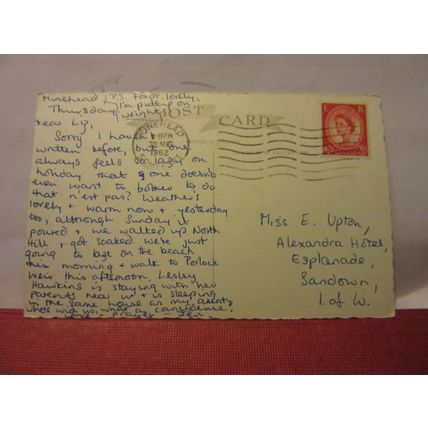 Minehead
Thursday
P.S. Food's lovely,
I'm putting on
weight!
POST
CARD
MINEHEAD
PM
30 AUG
1962
E R
Dear Liz,
Sorry I haven't
written before, but one
always feels so lazy on
holiday that one doesn't
even want to bother to do
that n'est pas? Weather's
lovely & warm now & yesterday
too, although Sunday it
poured & we walked up North
Hill & got soaked. We're just
going to laze on the beach
this morning & walk to Porlock
Weir this afternoon. Lesley
Hawkins is staying with her
parents near us & is sleeping
in the same house as my aunty
who's with us, what a coincidence,
Love &
Jen
Miss E. Upton,
Alexandra Hotel,
Esplanade,
Sandown,
I. of W.